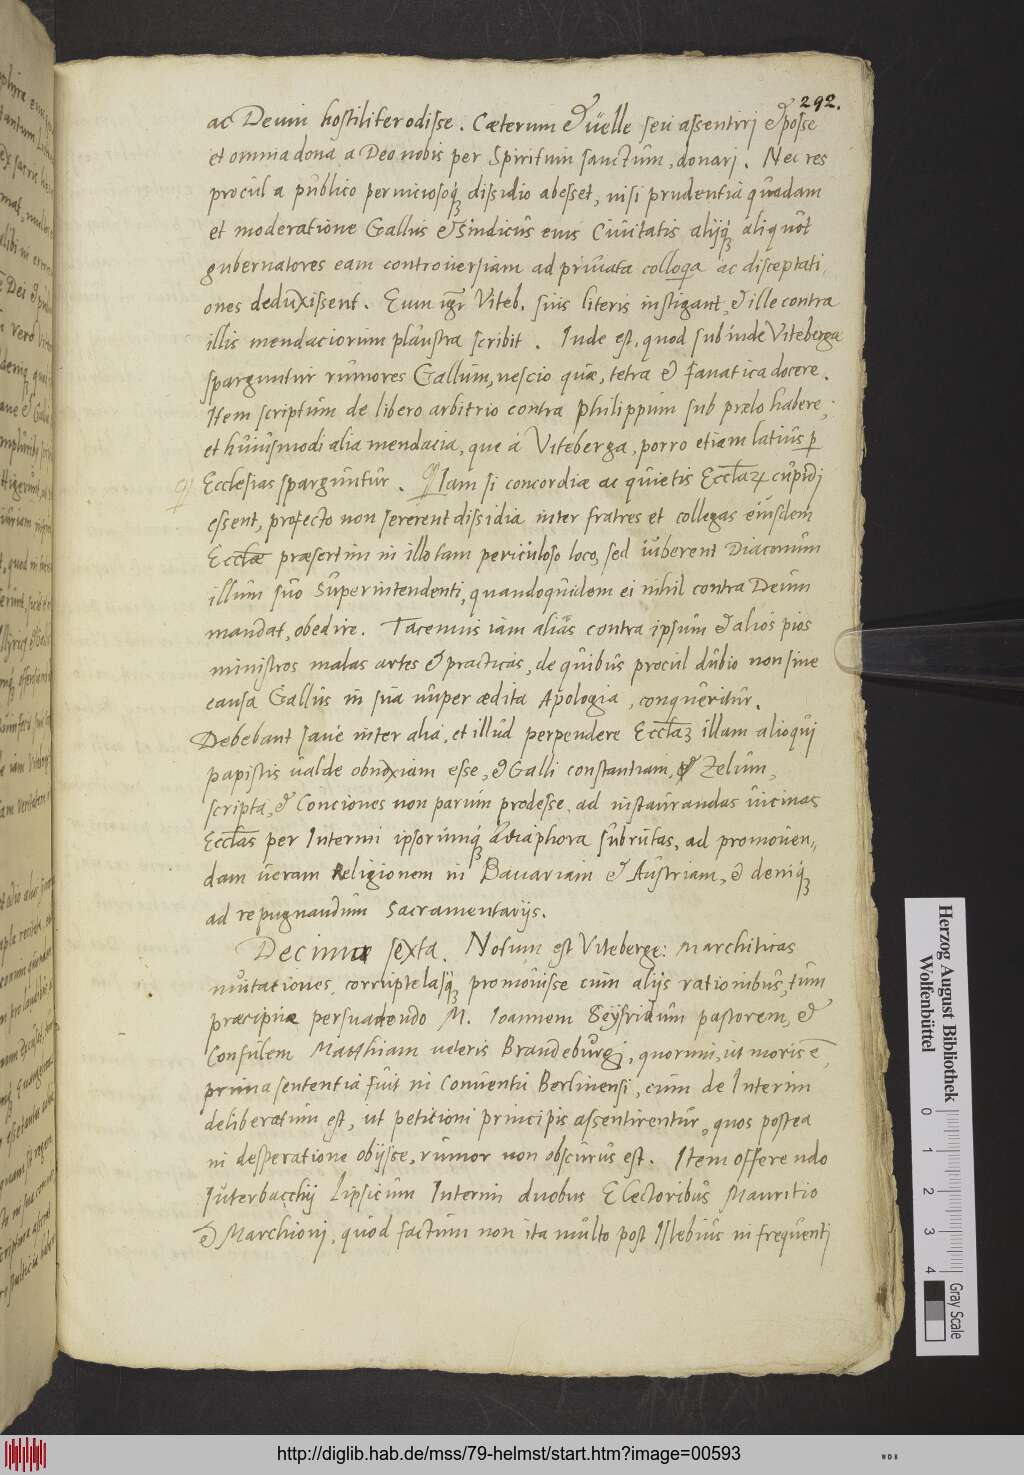 292.
ac Deum hostiliter odisse. Cæterum & uelle seu assentiri & posse
et omnia dona a Deo nobis per Spiritum sanctum, donari. Nec res
procul a publico perniciosoq́ꝫ dissidio abesset, nisi prudentia quadam
et moderatione Gallus & Sindicus eius Ciuitatis alijq́ꝫ aliquot
gubernatores eam controuersiam ad priuata colloqia ac disceptati-
ones deduxissent. Eum igr̃ Viteb. suis literis instigant, & ille contra
illis mendaciorum plaustra scribit. Inde est, quod subinde Viteberga
sparguntur rumores Gallum, nescio quæ, tetra & fanatica docere.
Item scriptum de libero arbitrio contra Philippum sub prælo habere,
et huiusmodi alia mendacia, que á Viteberga, porro etiam latius ꝑ
Ecclesias sparguntur. Iam si concordiæ ac quietis Eccl̃aꝝ cupidj
essent, profecto non sererent dissidia inter fratres et collegas eiusdem
Eccl̃æ præsertim in illo tam periculoso loco, sed iuberent Diaconum
illum suo Superintendenti, quandoquidem ei nihil contra Deum
mandat, obedire. Tacemus iam aliàs contra ipsum & alios pios
ministros malas artes & practicas, de quibus procul dubio non sine
causa Gallus in sua nuper ædita Apologia, conqueritur.
Debebant sanè inter alia, et illud perpendere Eccl̃aꝫ illam alioqui
papistis ualde obnoxiam esse, & Galli constantiam, & Zelum,
scripta, & Conciones non parum prodesse, ad instaurandas uicinas
Eccl̃as per Interim ipsorumq́ꝫ adiaphora subrutas, ad promouen-
dam ueram Religionem in Bauariam & Austriam, & deniq́ꝫ
ad repugnandum Sacramentarijs.
Decima sexta. Notum est Viteberge: Marchiticas
mutationes, corruptelasq́ꝫ promouisse cum alijs rationibus, tum
præcipuæ persuadendo M. Ioannem Seyfridum pastorem, &
Consulem Matthiam ueteris Brandeburgi, quorum, ut moris ẽ,
prima sententia fuit in Conuentu Berlinensi, cum de Interim
deliberatum est, ut petitioni principis assentirentur, quos postea
in desperatione obijsse, rumor non obscurus est. Item offerendo
Iuterbacchij Lipsicum Interim duobus Electoribus Mauritio
& Marchioni, quod factum non ita multo post Islebius in frequenti
Herzog August Bibliothek
Wolfenbüttel
0
1
2
3
4
Gray Scale
http://diglib.hab.de/mss/79-helmst/start.htm?image=00593